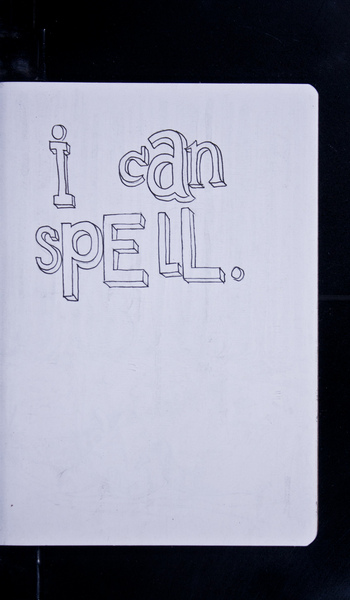 i can
spELL.